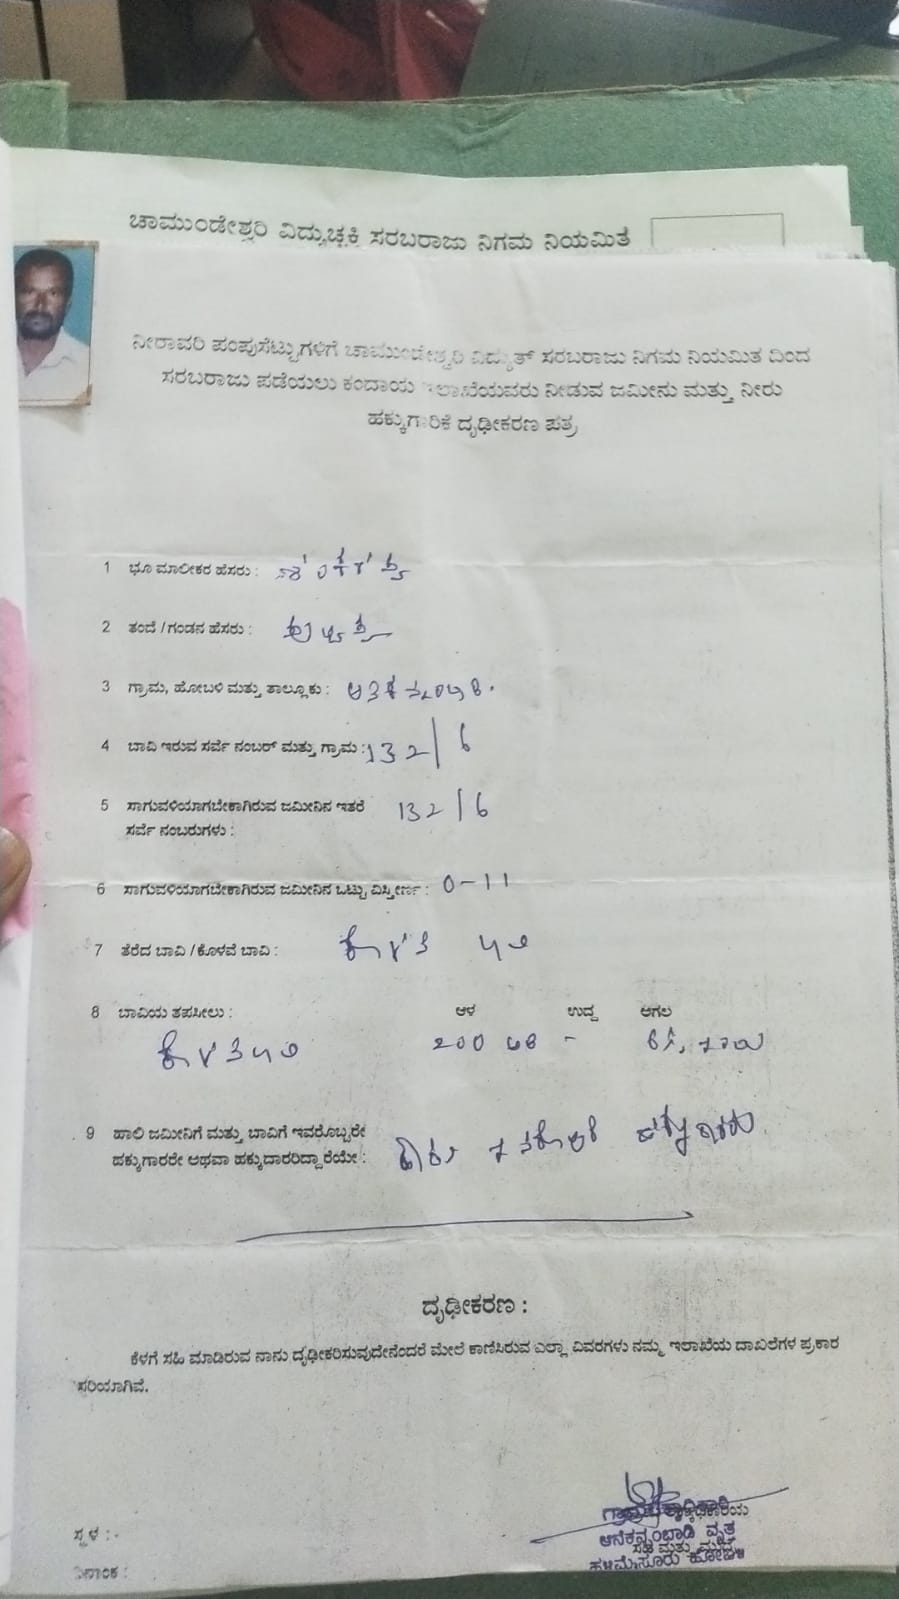 ಚಾಮುಂಡೇಶ್ವರಿ ವಿದ್ಯುಚ್ಛಕ್ತಿ ಸರಬರಾಜು ನಿಗಮ ನಿಯಮಿತ
ನೀರಾವರಿ ಪಂಪುಸೆಟ್ಟುಗಳಿಗೆ ಚಾಮುಂಡೇಶ್ವರಿ ವಿದ್ಯುತ್ ಸರಬರಾಜು ನಿಗಮ ನಿಯಮಿತ ದಿಂದ
ಸರಬರಾಜು ಪಡೆಯಲು ಕಂದಾಯ ಇಲಾಖೆಯವರು ನೀಡುವ ಜಮೀನು ಮತ್ತು ನೀರು
ಹಕ್ಕುಗಾರಿಕೆ ದೃಢೀಕರಣ ಪತ್ರ
1 ಭೂ ಮಾಲೀಕರ ಹೆಸರು :
2 ತಂದೆ / ಗಂಡನ ಹೆಸರು :
3 ಗ್ರಾಮ, ಹೋಬಳಿ ಮತ್ತು ತಾಲ್ಲೂಕು :
4 ಬಾವಿ ಇರುವ ಸರ್ವೆ ನಂಬರ್ ಮತ್ತು ಗ್ರಾಮ : 132/6
5 ಸಾಗುವಳಿಯಾಗಬೇಕಾಗಿರುವ ಜಮೀನಿನ ಇತರೆ 132/6
ಸರ್ವೆ ನಂಬರುಗಳು :
6 ಸಾಗುವಳಿಯಾಗಬೇಕಾಗಿರುವ ಜಮೀನಿನ ಒಟ್ಟು ವಿಸ್ತೀರ್ಣ : 0-11
7 ತೆರೆದ ಬಾವಿ / ಕೊಳವೆ ಬಾವಿ : ಕೊಳವೆ ಬಾವಿ
8 ಬಾವಿಯ ತಪಸೀಲು : ಆಳ ಉದ್ದ ಅಗಲ
ಕೊಳವೆ ಬಾವಿ 200 ಅಡಿ -
9 ಹಾಲಿ ಜಮೀನಿಗೆ ಮತ್ತು ಬಾವಿಗೆ ಇವರೊಬ್ಬರೇ
ಹಕ್ಕುಗಾರರೇ ಅಥವಾ ಹಕ್ಕುದಾರರಿದ್ದಾರೆಯೇ :
ದೃಢೀಕರಣ :
ಕೆಳಗೆ ಸಹಿ ಮಾಡಿರುವ ನಾನು ದೃಢೀಕರಿಸುವುದೇನೆಂದರೆ ಮೇಲೆ ಕಾಣಿಸಿರುವ ಎಲ್ಲಾ ವಿವರಗಳು ನಮ್ಮ ಇಲಾಖೆಯ ದಾಖಲೆಗಳ ಪ್ರಕಾರ
ಸರಿಯಾಗಿವೆ.
ಸ್ಥಳ :-
ವೃತ್ತ
ದಿನಾಂಕ :